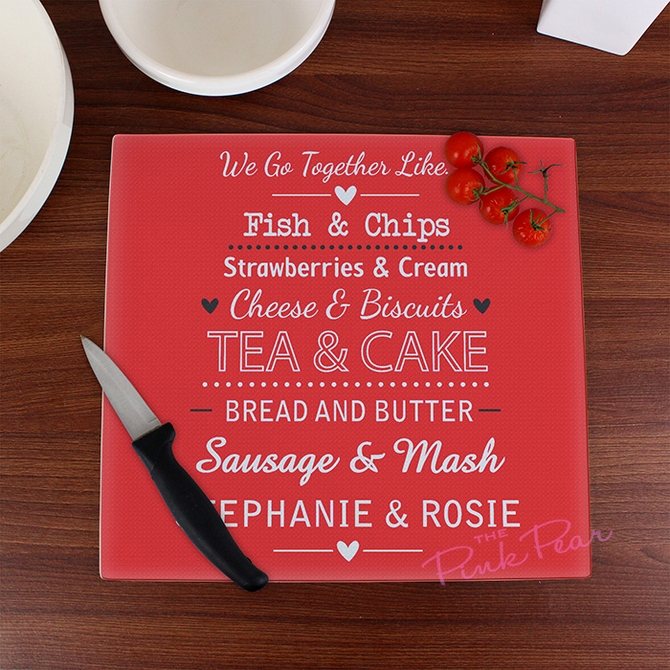 We Go Together Like.
Fish & Chips
Strawberries & Cream
Cheese & Biscuits
TEA & CAKE
BREAD AND BUTTER
Sausage & Mash
TEPHANIE & ROSIE
THE
Pink Pear